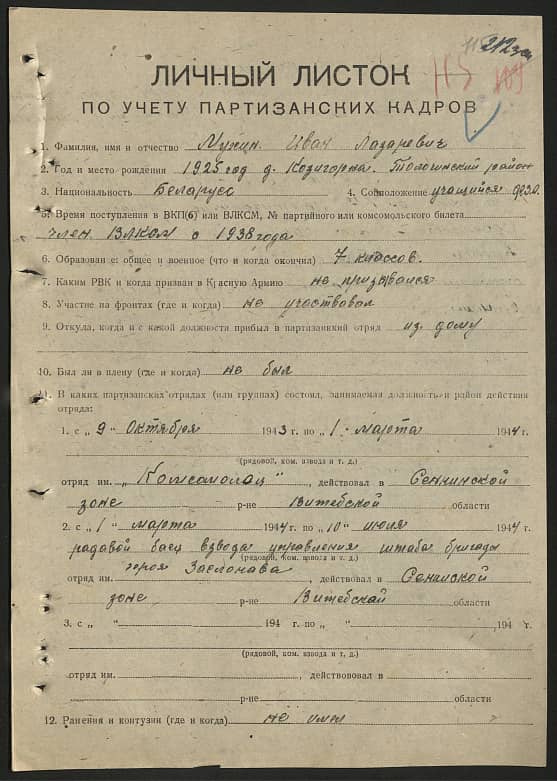 212
115
109
ЛИЧНЫЙ ЛИСТОК
ПО УЧЕТУ ПАРТИЗАНСКИХ КАДРОВ
1. Фамилия, имя и отчество Мухин Иван Лазаревич
2. Год и место рождения 1925 год д. Козигорка. Толочинский район
3. Национальность Беларусс 4. Соцположение учащийся
5. Время поступления в ВКП(б) или ВЛКСМ, № партийного или комсомольского билета
член ВЛКСМ с 1938 года
6. Образование: общее и военное (что и когда окончил) 7 классов.
7. Каким РВК и когда призван в Красную Армию не призывался
8. Участие на фронтах (где и когда) не участвовал
9. Откуда, когда и с какой должности прибыл в партизанский отряд из дому
10. Был ли в плену (где и когда) не был
11. В каких партизанских отрядах (или группах) состоял, занимаемая должность и район действия
отряда:
1. с „ 9 " Октября 1943 г. по „ 1 " марта 1944 г.
(рядовой, ком. взвода и т. д.)
отряд им. „Комсомолец" , действовал в Сеннинской
зоне р-не Витебской области
2. с „ 1 " марта 1944 г. по „ 10 " июля 1944 г.
радавой баец взвода управления штаба бригады
(рядовой, ком. взвода и т. д.)
отряд им. героя Заслонава , действовал в Сенниской
зоне р-не Витебской области
3. с „ " 194 г. по „ " 194 г.
(рядовой, ком. взвода и т. д.)
отряд им. , действовал в
р-не области
12. Ранения и контузии (где и когда) не имел